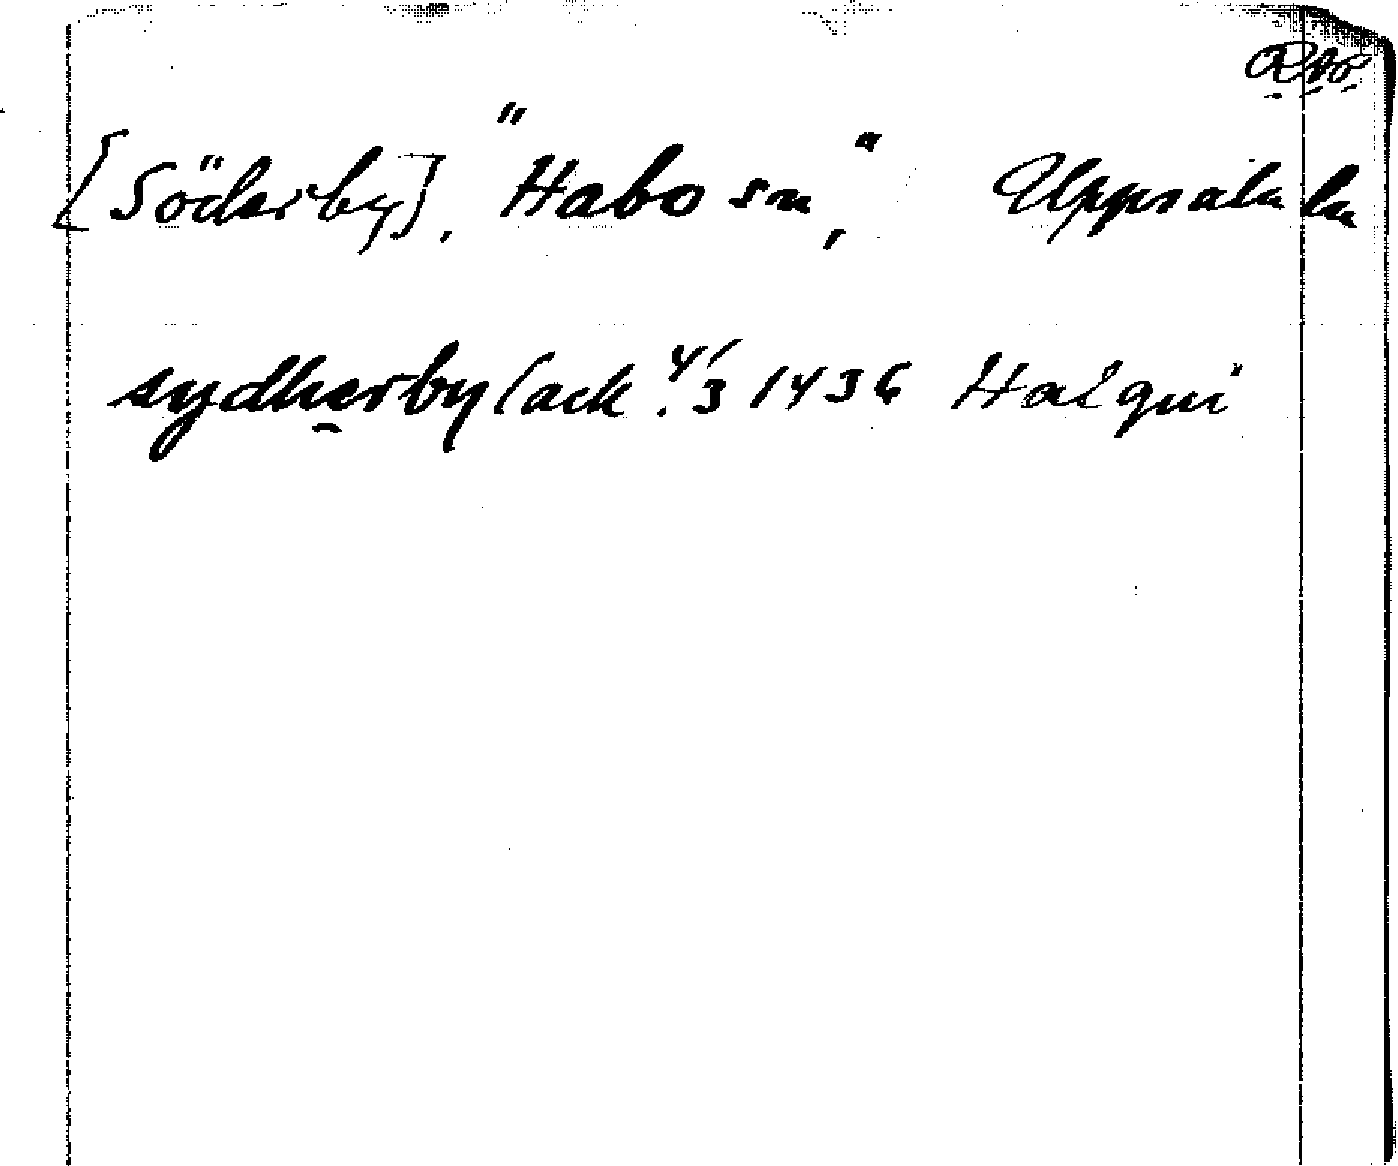 RAP.
[Söderby]. "Habo sn," Uppsala ln
sydherby (ack. 4/3 1436 Halqui